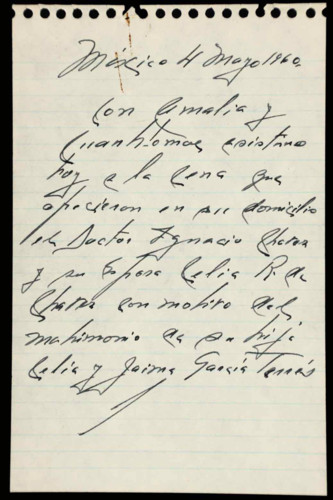 México 4 Mayo 1960.
Con Amalia y
Cuauhtemoc asistimos
hoy a la cena que
ofrecieron en su domicilio
el Doctor Ignacio Chavez
y su esposa Celia R. de
Chavez con motivo del
matrimonio de su hija
Celia y Jaime García Terrés